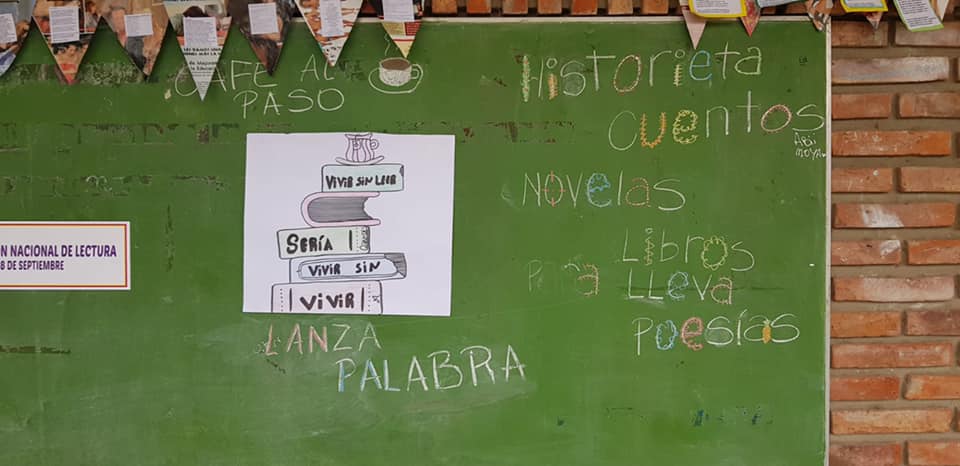 CAFÉ AL
PASO
VIVIR SIN LEER
SERÍA
VIVIR SIN
VIVIR
N NACIONAL DE LECTURA
8 DE SEPTIEMBRE
LANZA
PALABRA
Historieta
cuentos
Abi
MOYA
NOVelas
Libros
Para LLeva
Poesías